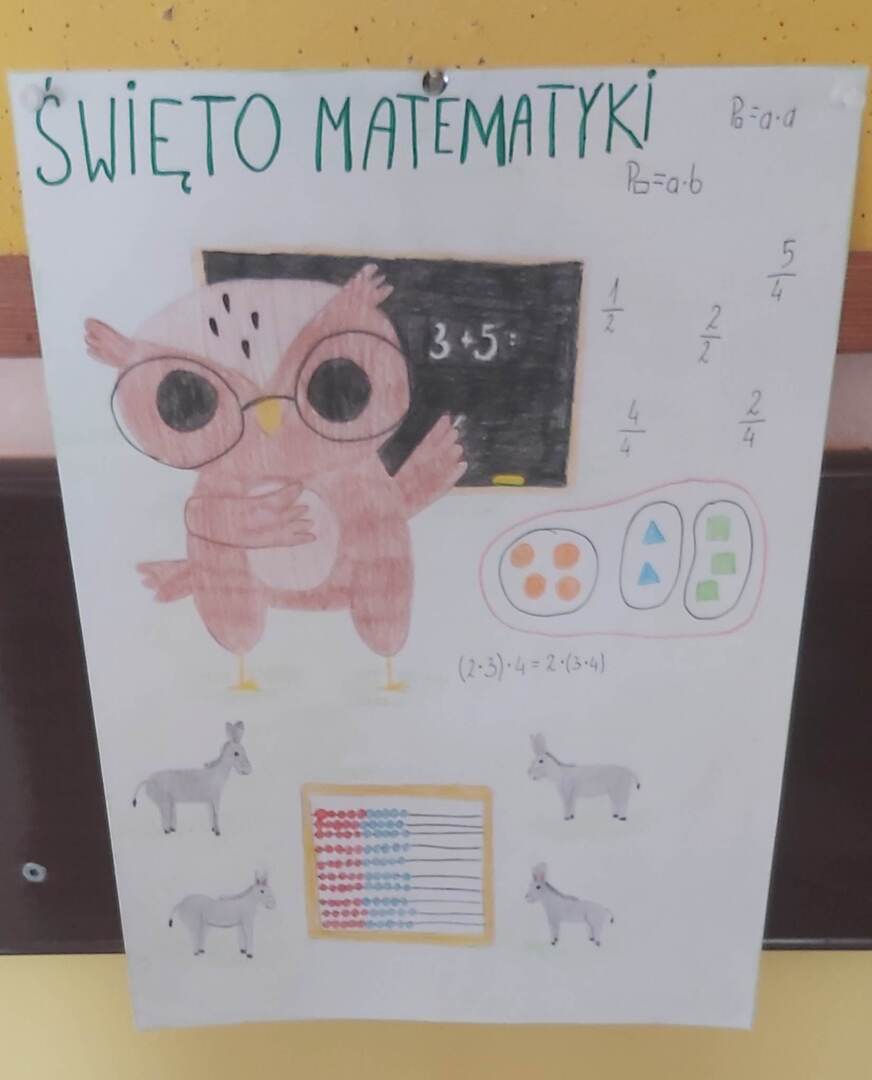 ŚWIĘTO MATEMATYKI
P□=a·a
P▭=a·b
3+5=
1/2
2/2
5/4
4/4
2/4
(2·3)·4=2·(3·4)